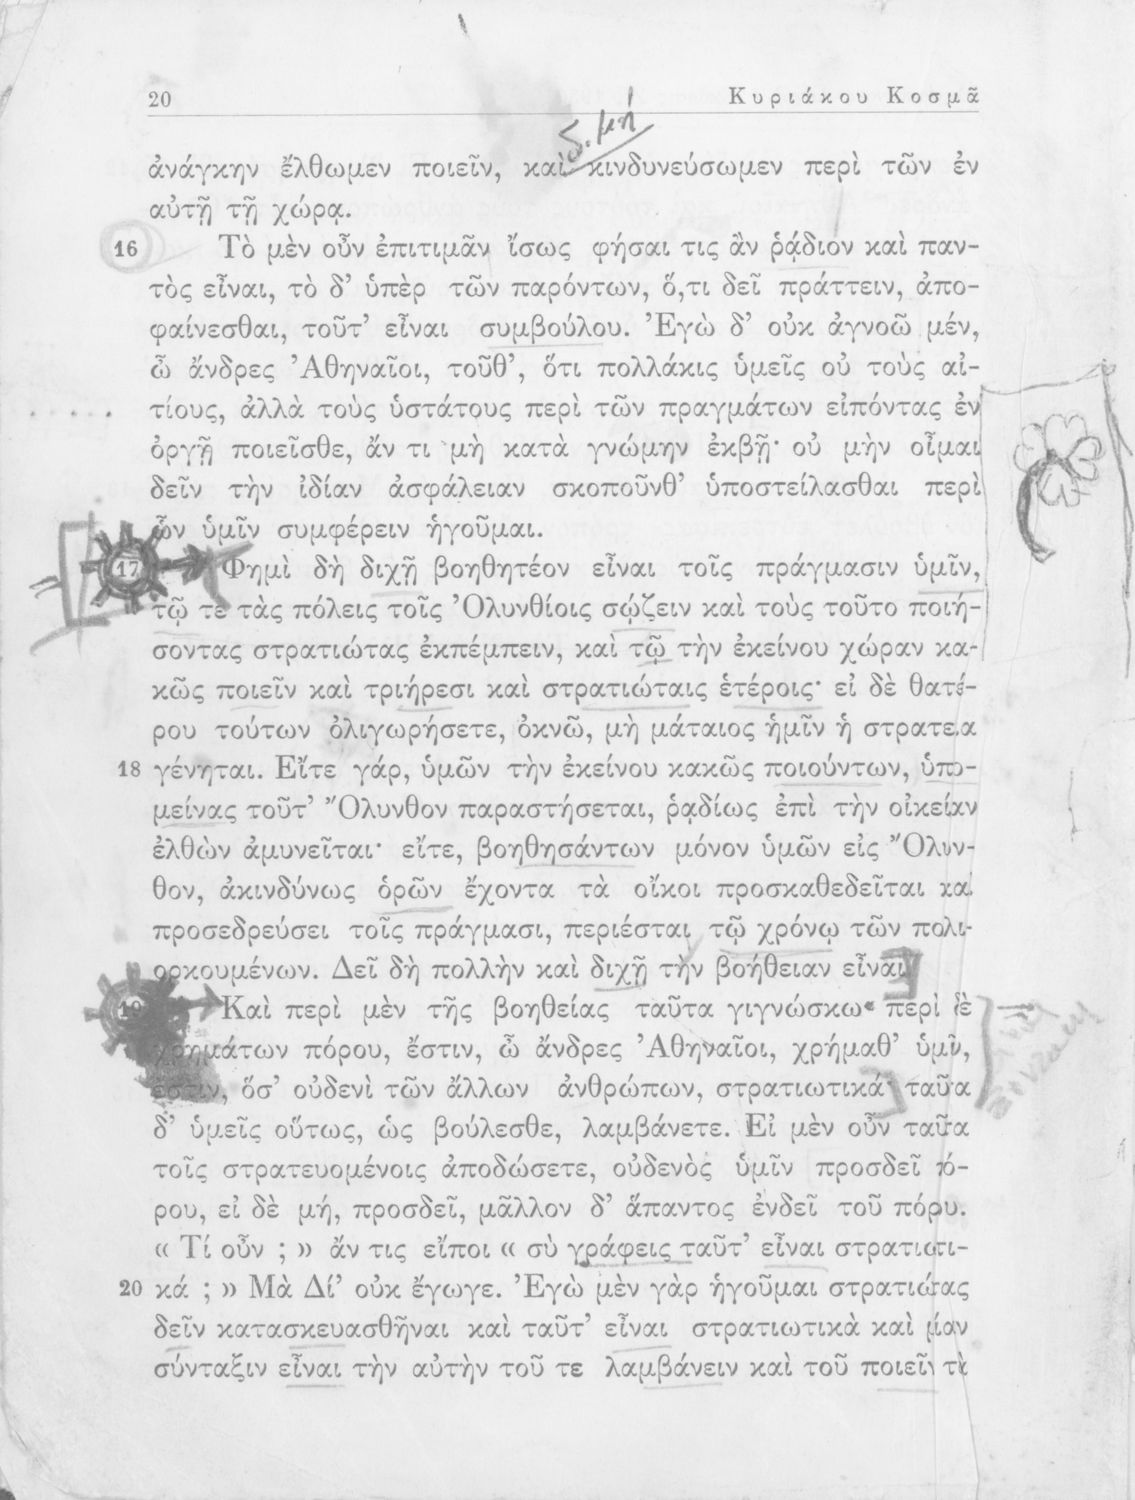 20 Κυριάκου Κοσμᾶ
δ. μή
ἀνάγκην ἔλθωμεν ποιεῖν, καὶ κινδυνεύσωμεν περὶ τῶν ἐν
αὐτῇ τῇ χώρᾳ.
16 Τὸ μὲν οὖν ἐπιτιμᾶν ἴσως φήσαι τις ἂν ῥᾴδιον καὶ παν-
τὸς εἶναι, τὸ δ’ ὑπὲρ τῶν παρόντων, ὅ,τι δεῖ πράττειν, ἀπο-
φαίνεσθαι, τοῦτ’ εἶναι συμβούλου. Ἐγὼ δ’ οὐκ ἀγνοῶ μέν,
ὦ ἄνδρες Ἀθηναῖοι, τοῦθ’, ὅτι πολλάκις ὑμεῖς οὐ τοὺς αἰ-
τίους, ἀλλὰ τοὺς ὑστάτους περὶ τῶν πραγμάτων εἰπόντας ἐν
ὀργῇ ποιεῖσθε, ἄν τι μὴ κατὰ γνώμην ἐκβῇ· οὐ μὴν οἶμαι
δεῖν τὴν ἰδίαν ἀσφάλειαν σκοποῦνθ’ ὑποστείλασθαι περὶ
ὧν ὑμῖν συμφέρειν ἡγοῦμαι.
17 Φημὶ δὴ διχῇ βοηθητέον εἶναι τοῖς πράγμασιν ὑμῖν,
τῷ τε τὰς πόλεις τοῖς Ὀλυνθίοις σῴζειν καὶ τοὺς τοῦτο ποιή-
σοντας στρατιώτας ἐκπέμπειν, καὶ τῷ τὴν ἐκείνου χώραν κα-
κῶς ποιεῖν καὶ τριήρεσι καὶ στρατιώταις ἑτέροις· εἰ δὲ θατέ-
ρου τούτων ὀλιγωρήσετε, ὀκνῶ, μὴ μάταιος ἡμῖν ἡ στρατεία
18 γένηται. Εἴτε γάρ, ὑμῶν τὴν ἐκείνου κακῶς ποιούντων, ὑπο-
μείνας τοῦτ’ Ὄλυνθον παραστήσεται, ῥᾳδίως ἐπὶ τὴν οἰκείαν
ἐλθὼν ἀμυνεῖται· εἴτε, βοηθησάντων μόνον ὑμῶν εἰς Ὄλυν-
θον, ἀκινδύνως ὁρῶν ἔχοντα τὰ οἴκοι προσκαθεδεῖται καὶ
προσεδρεύσει τοῖς πράγμασι, περιέσται τῷ χρόνῳ τῶν πολι-
ορκουμένων. Δεῖ δὴ πολλὴν καὶ διχῇ τὴν βοήθειαν εἶναι.
19 Καὶ περὶ μὲν τῆς βοηθείας ταῦτα γιγνώσκω· περὶ δὲ
χρημάτων πόρου, ἔστιν, ὦ ἄνδρες Ἀθηναῖοι, χρήμαθ’ ὑμῖν,
ἔστιν, ὅσ’ οὐδενὶ τῶν ἄλλων ἀνθρώπων, στρατιωτικά· ταῦτα
δ’ ὑμεῖς οὕτως, ὡς βούλεσθε, λαμβάνετε. Εἰ μὲν οὖν ταῦτα
τοῖς στρατευομένοις ἀποδώσετε, οὐδενὸς ὑμῖν προσδεῖ πό-
ρου, εἰ δὲ μή, προσδεῖ, μᾶλλον δ’ ἅπαντος ἐνδεῖ τοῦ πόρου.
« Τί οὖν ; » ἄν τις εἴποι « σὺ γράφεις ταῦτ’ εἶναι στρατιωτι-
20 κά ; » Μὰ Δί’ οὐκ ἔγωγε. Ἐγὼ μὲν γὰρ ἡγοῦμαι στρατιώτας
δεῖν κατασκευασθῆναι καὶ ταῦτ’ εἶναι στρατιωτικὰ καὶ μίαν
σύνταξιν εἶναι τὴν αὐτὴν τοῦ τε λαμβάνειν καὶ τοῦ ποιεῖν τὰ